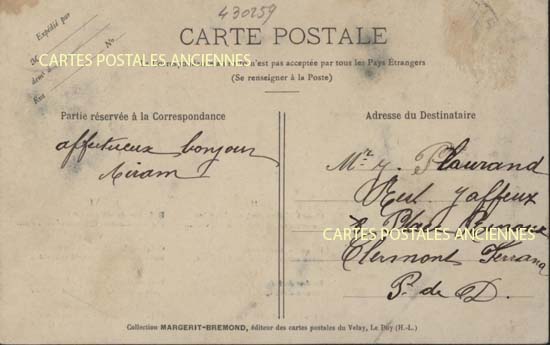 430259
CARTE POSTALE
Expédié par
M
demeurant
Rue
No
CARTES POSTALES ANCIENNES
n'est pas acceptée par tous les Pays Etrangers
(Se renseigner à la Poste)
Partie réservée à la Correspondance
affectueux bonjour
Miram
Adresse du Destinataire
Mr J. Plaurand
Place
CARTES POSTALES ANCIENNES
Clermont Ferrand
P. de D.
Collection MARGERIT-BREMOND, éditeur des cartes postales du Velay, Le Puy (H.-L.)